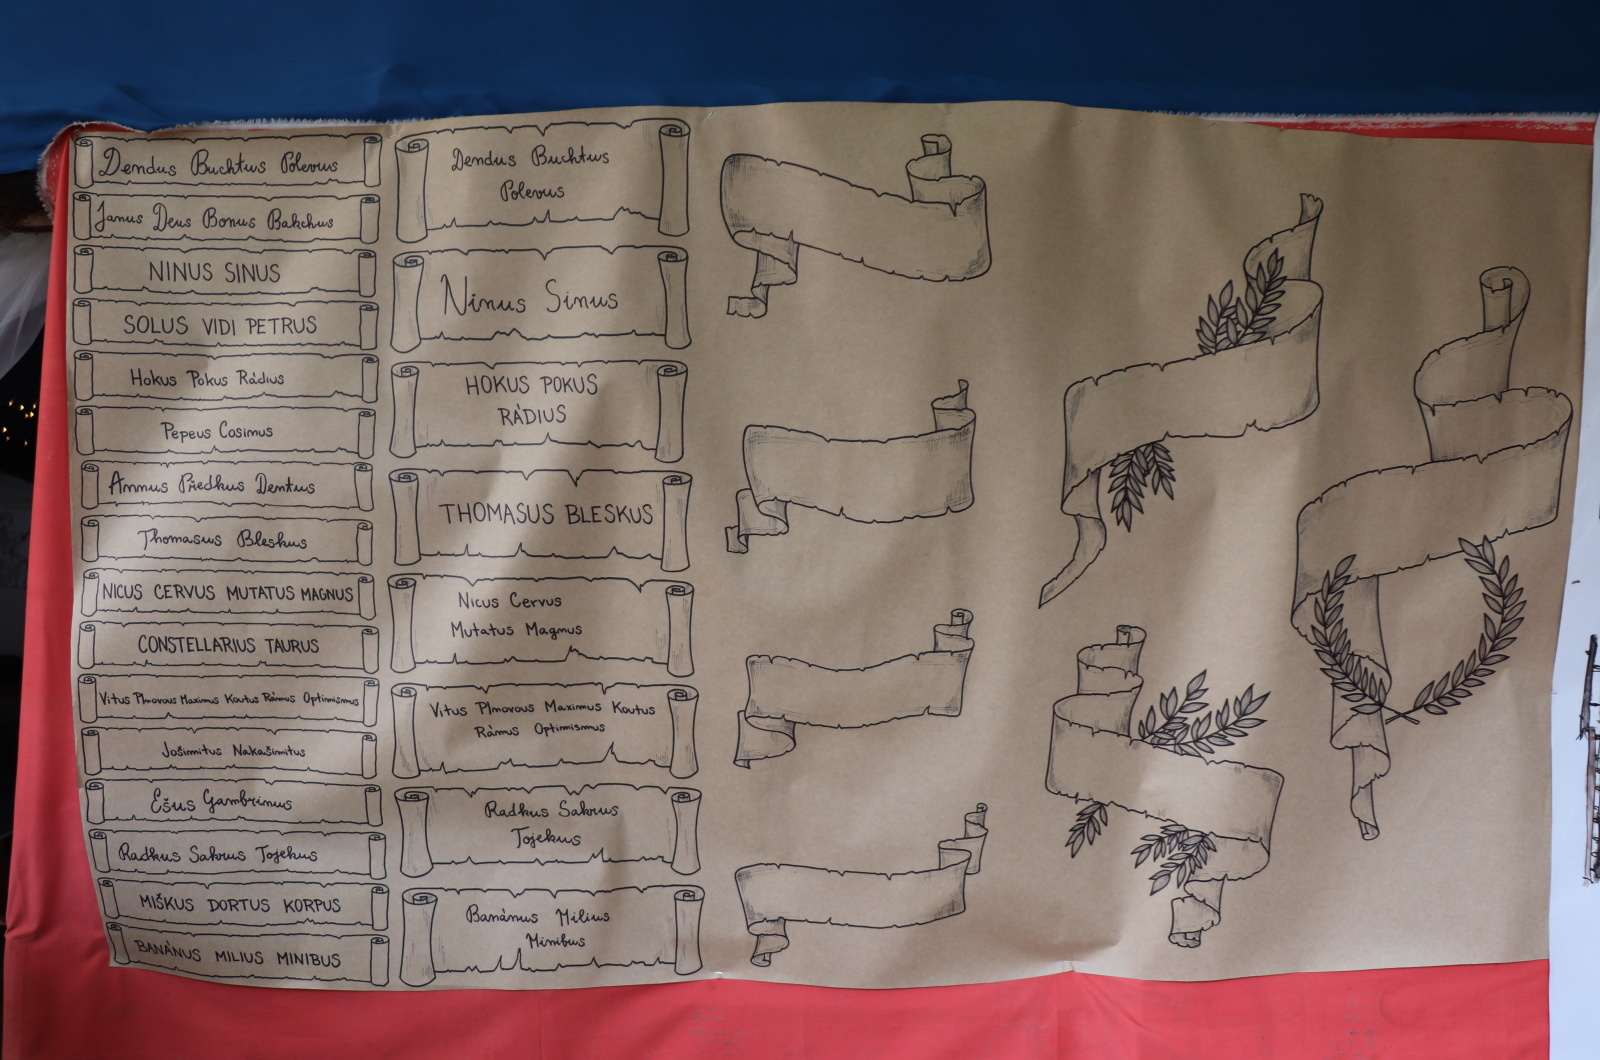 Dendus Buchtus Polevus
Janus Deus Bonus Bakchus
NINUS SINUS
SOLUS VIDI PETRUS
Hokus Pokus Rádius
Pepeus Cosimus
Annus Předkus Dentus
Thomasus Bleskus
NICUS CERVUS MUTATUS MAGNUS
CONSTELLARIUS TAURUS
Vitus Plnovous Maximus Koutus Rámus Optimismus
Jošimitus Nakašimitus
Ešus Gambrinus
Radkus Sakrus Tojekus
MIŠKUS DORTUS KORPUS
BANÁNUS MILIUS MINIBUS
Dendus Buchtus
Polevus
Ninus Sinus
HOKUS POKUS
RÁDIUS
THOMASUS BLESKUS
Nicus Cervus
Mutatus Magnus
Vitus Plnovous Maximus Koutus
Rámus Optimismus
Radkus Sakrus
Tojekus
Banánus Milius
Minibus